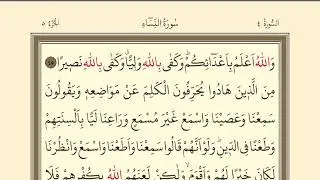 السورة ٤
سورة النساء
الجزء ٥
وَاللَّهُ أَعْلَمُ بِأَعْدَائِكُمْ ۚ وَكَفَىٰ بِاللَّهِ وَلِيًّا وَكَفَىٰ بِاللَّهِ نَصِيرًا ٤٥
مِنَ الَّذِينَ هَادُوا يُحَرِّفُونَ الْكَلِمَ عَنْ مَوَاضِعِهِ وَيَقُولُونَ
سَمِعْنَا وَعَصَيْنَا وَاسْمَعْ غَيْرَ مُسْمَعٍ وَرَاعِنَا لَيًّا بِأَلْسِنَتِهِمْ
وَطَعْنًا فِي الدِّينِ ۚ وَلَوْ أَنَّهُمْ قَالُوا سَمِعْنَا وَأَطَعْنَا وَاسْمَعْ وَانْظُرْنَا
لَكَانَ خَيْرًا لَهُمْ وَأَقْوَمَ وَلَٰكِنْ لَعَنَهُمُ اللَّهُ بِكُفْرِهِمْ فَلَا